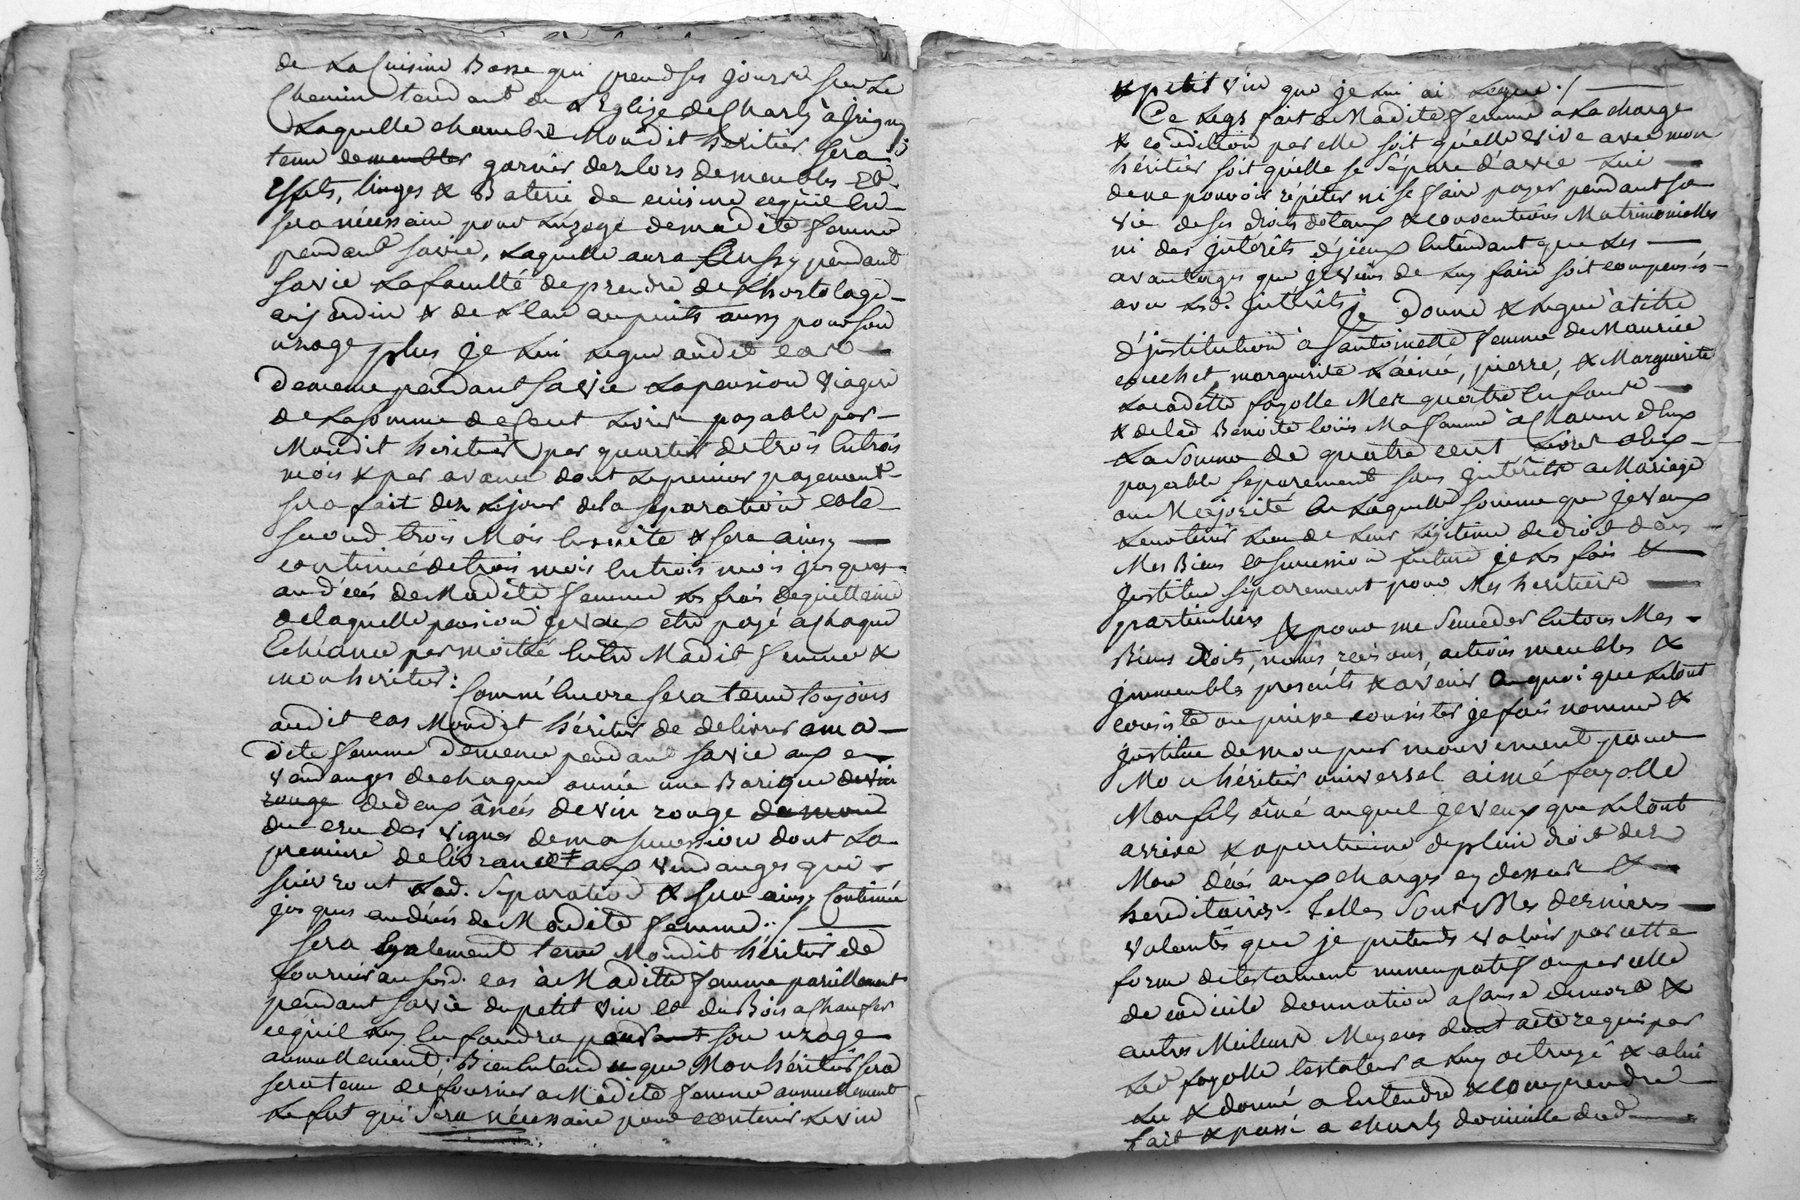 de La Cuisine Basse qui prend ses jours sur Le
Chemin tendant de L'Eglise de Charly à jrigny
Laquelle chambre Moudit héritier sera
tenu de meubler garnir dez lors de meubles Et
effets, linges & Baterie de cuisine ce qu'il lui
sera nécéssaire pour L'uzage de madite femme
pendant sa vie, Laquelle aura Aussy pendant
sa vie La faculté de prendre de L'hortolage
au jardin & de L'eau au puits aussy pour son
usage plus je Lui Legue audit cas
de meme pendant sa vie La pension viagere
de La somme de Cent Livres payable par
Mondit héritier par quartier de trois En trois
mois & par avance dont Le premier payement
sera fait dez Le jour de la separation cela
second trois Mois Ensuite & sera ainsy
continué de trois mois En trois mois jusques
au décés de Madite femme Les frais de quittance
de laquelle pension je veux etre payé a chaque
Echéance par moitié Entre Madit femme &
mon héritier: Comme Encore sera tenu toujours
audit cas Mondit héritier de delivrer a ma
dite femme de meme pendant sa vie aux
vendanges de chaque année une Barique de vin
rouge de deux ânées de vin rouge de mon
du cru des vignes de ma succession dont La
premiere delivrance aux vendanges qui
suivront Lad. Separation & sera ainsy Continué
jusques au décés de Madite femme ./.
Sera Egalement tenu Mondit héritier de
fournir au susd. cas à Madite femme pareillement
pendant sa vie du petit vin et du Bois a chaufer
ce qu'il Luy En faudra pour son uzage
annuellement; Bien Entendu que Mon héritier sera
sera tenu de fournir a Madite femme annuellement
Le fut qui sera nécéssaire pour contenir Le vin
& petit vin que je Lui ai Legué ./.
Ce Legs fait a Madite femme a La charge
& condition par elle soit quelle vive avec mon
héritier soit qu'elle se sépare d'avec Lui
de ne pouvoir répéter ni se faire payer pendant sa
vie de ses droits dotaux & conventions Matrimonialles
ni des jntérêts d'jceux Entendant que Les
avantages que je viens de Luy faire soit compensés
avec Lesd. jntérêts je donne & Legue à titre
d'jnstitution à antoinette femme de Maurice
couchet marguerite L'ainée, pierre, & Marguerite
La cadette fayolle Mes quatre Enfants
& de lad Benoite Loüis Ma femme à chacun d'Eux
La Somme de quatre cent Livres
payable séparement sans jntérêts a Mariage
ou Majorité En Laquelle somme que je veux
Leur tenir Lieu de Leur Légitime de droit dans
Mes Biens & succession future je Les fais &
jnstitue séparement pour Mes heritiers
particuliers & pour me Succeder En tous Mes
Biens droits, noms, raisons, actions meubles &
jmmeubles presents & avenir En quoi que Le tout
consiste ou puisse consister je fais nomme &
jnstitue de mon pur mouvement pour
Mon héritier universel aimé fayolle
Mon fils aîné auquel je veux que Le tout
arrive & apartienne de plein droit dez
Mon décés aux charges cy dessus &
hereditaires. telles sont Mes dernieres
volontés que je pretends valoir par cette
forme de testament nuncupatif ou par celle
de codicile donnation a cause de mort &
autres Meilleurs Moyens dont acte requis par
Led fayolle testateur a Luy octroyé & a lui
Lu & donné a Entendre & comprendre
fait & passé a charly domicille dud